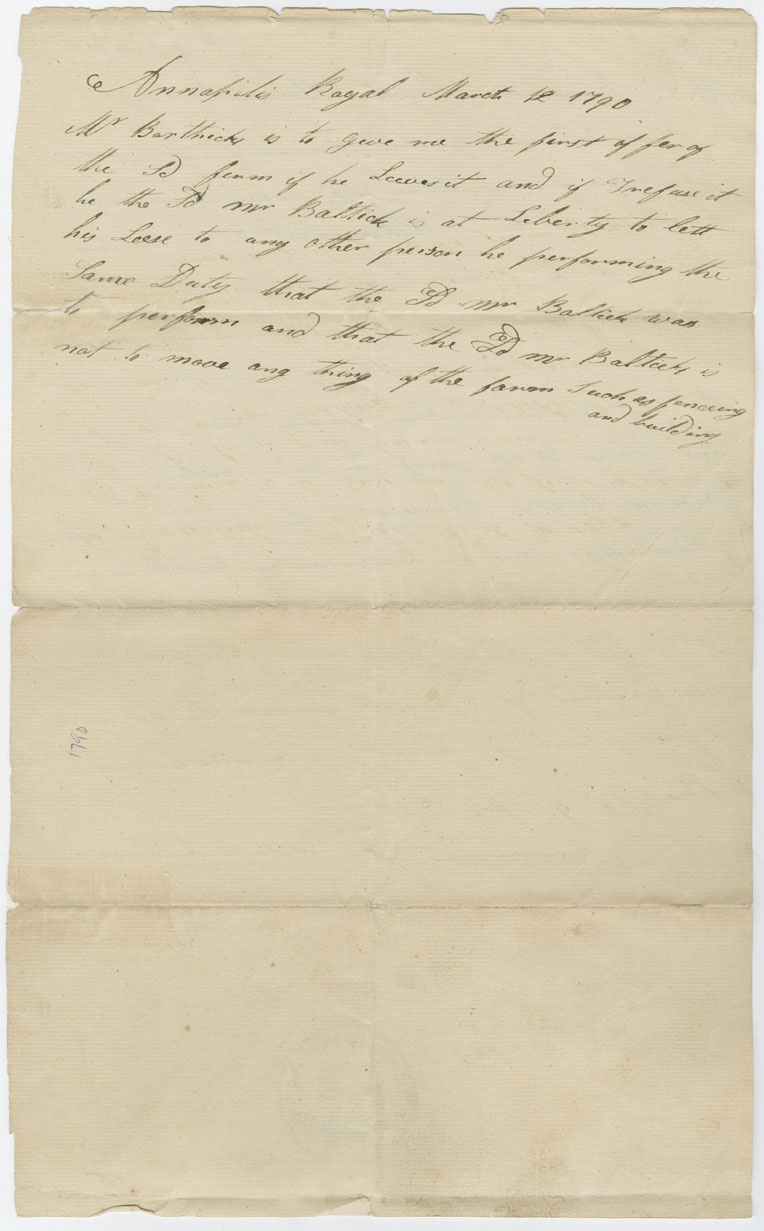 Annapolis Royal March 12 1790
Mr Barthick is to give me the first offer of
the Sd ferm if he Leeves it and if I refuse it
he the Sd mr Baltick is at Liberty to lett
his Leese to any other person he performing the
Same Duty that the Sd mr Baltick was
to perform and that the Sd mr Baltick is
not to moove any thing of the farem Such as fenceing
and building
1790